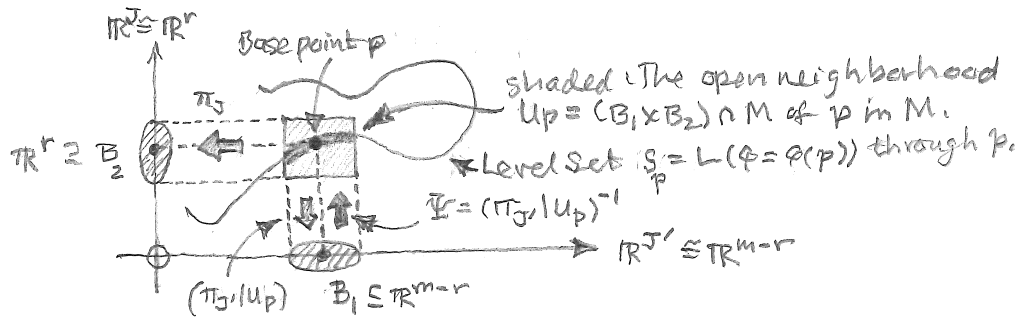 ℝᴶ ≅ ℝʳ
Base point p
π_J
shaded: The open neighborhood
U_p = (B₁×B₂) ∩ M of p in M.
ℝʳ ⊇ B₂
Level Set S_p = L(φ = φ(p)) through p.
Ψ = (π_J'|U_p)⁻¹
ℝᴶ' ≅ ℝᵐ⁻ʳ
(π_J'|U_p)
B₁ ⊆ ℝᵐ⁻ʳ